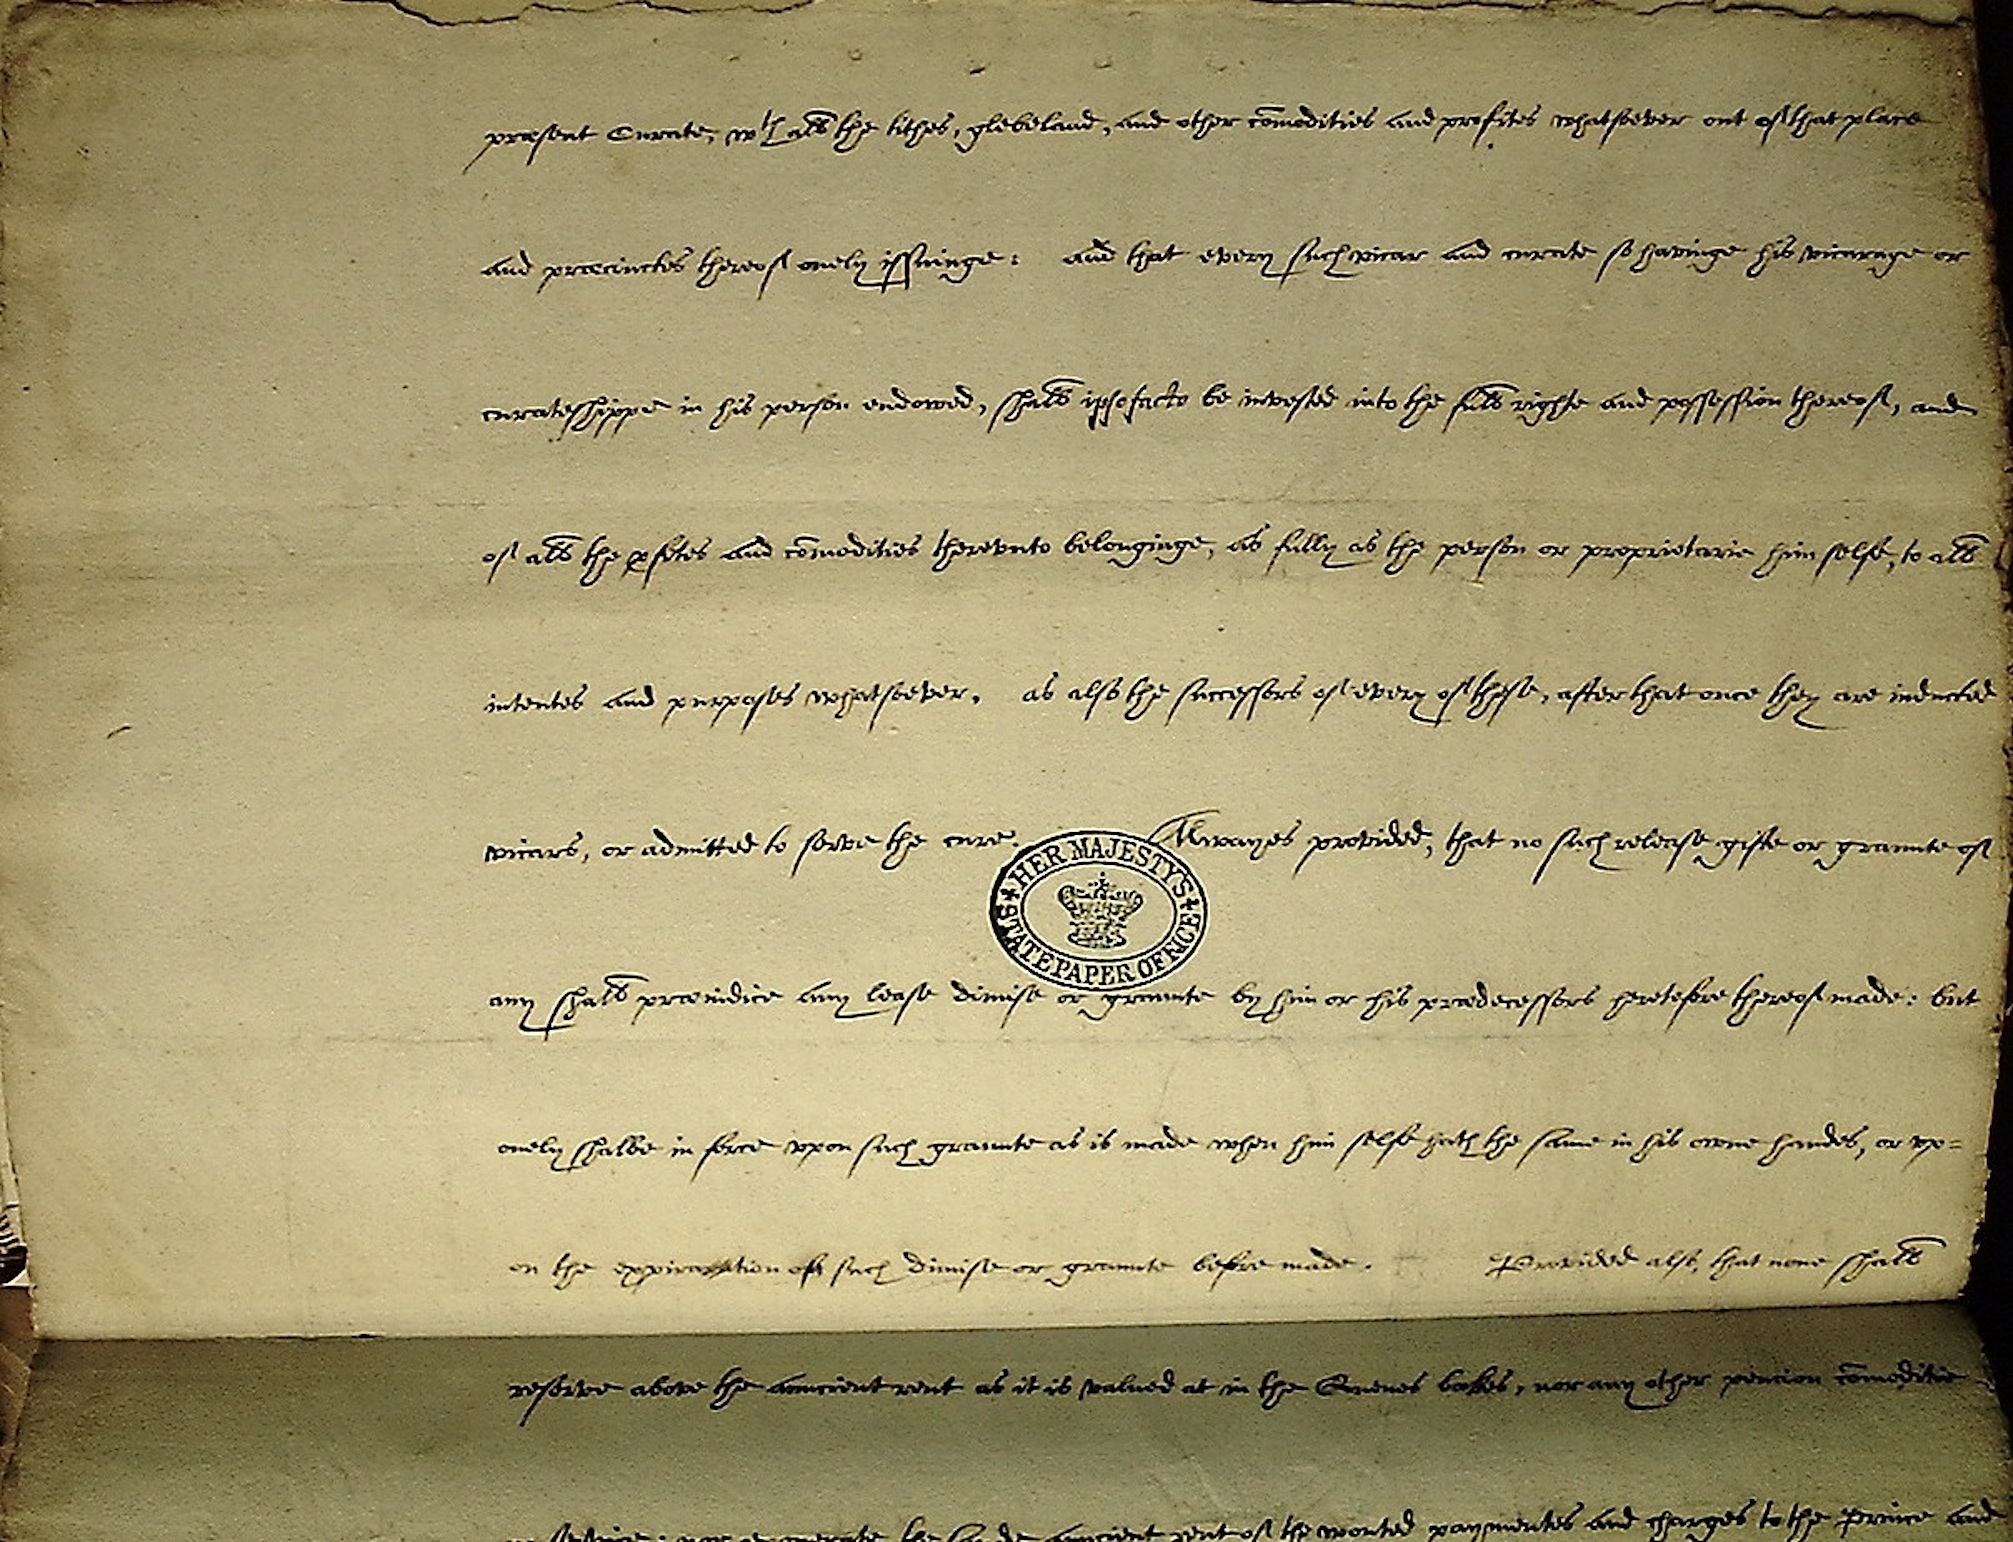 præsent Curate, wth all the tithes, glebeland, and other cõmodities and profites whatsoever out of that place
and præcinctes thereof onely issuinge: and that every such vicar and curate so havinge his vicarage or
curateshippe in his person endowed, shall ipso facto be invested into the full righte and possession thereof, and
of all the ꝓfites and cõmodities therevnto belonginge, as fully as the person or proprietarie him selfe, to all
intentes and purposes whatsoever. as also the successors of every of these, after that once they are inducted
vicars, or admitted to serve the cure. Alwayes provided, that no such release gifte or graunte of
HER MAJESTY'S STATE PAPER OFFICE
any shall præiudice any lease dimise or graunte by him or his prædecessors heretofore thereof made: but
onely shalbe in force vpon such graunte as is made when him selfe hath the same in his owne handes, or vp=
on the expiration of such dimise or graunte before made. Provided also, that none shall
reserve above the auncient rent as it is valued at in the Quenes bookes, nor any other pencion cõmoditie
auncient rent of the wonted paymentes and charges to the Prince and